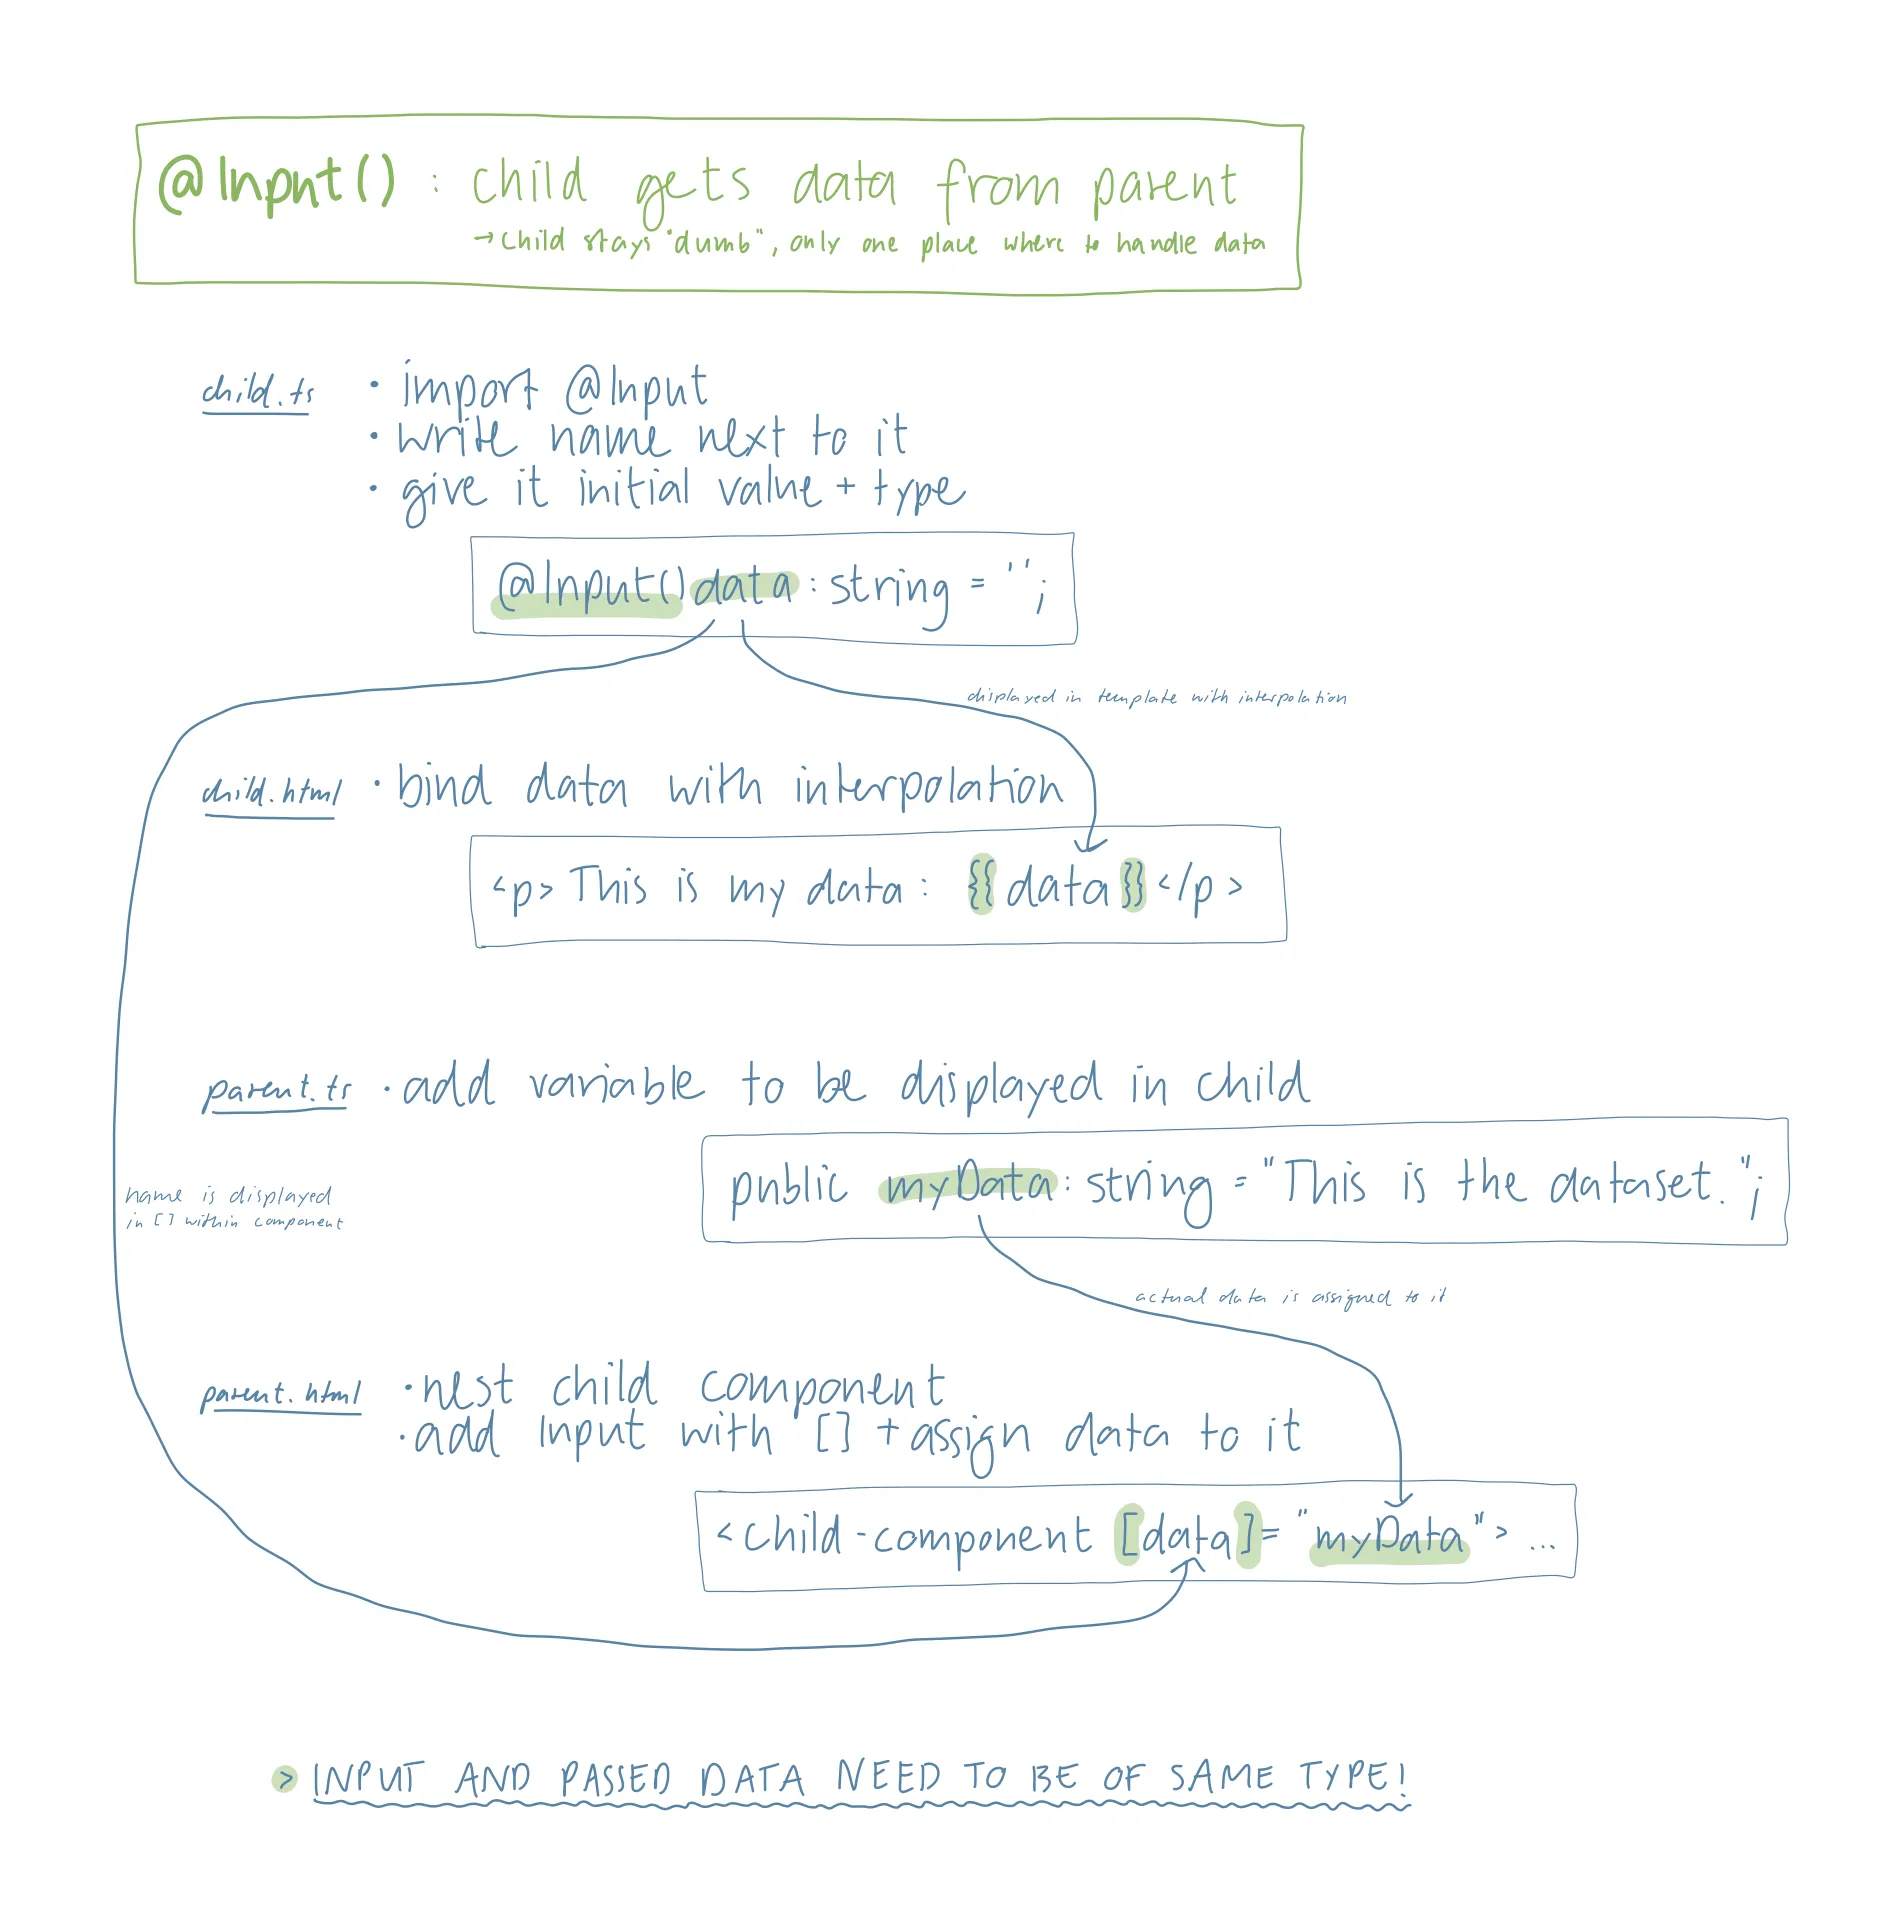 @Input() : child gets data from parent
→ child stays "dumb", only one place where to handle data
child.ts
• import @Input
• write name next to it
• give it initial value + type
@Input() data : string = '';
displayed in template with interpolation
child.html • bind data with interpolation
<p> This is my data : {{ data }} </p>
parent.ts • add variable to be displayed in child
public myData : string = "This is the dataset.";
name is displayed
in [] within component
actual data is assigned to it
parent.html • nest child component
• add Input with [] + assign data to it
<child-component [data] = "myData"> ...
> INPUT AND PASSED DATA NEED TO BE OF SAME TYPE!